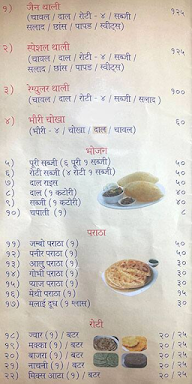 १) जैन थाली १२५
(चावल / दाल / रोटी - ४ / सब्जी /
सलाद / छांस / पापड / स्वीट्स)
२) स्पेशल थाली १२५
(चावल / दाल / रोटी - ४ / सब्जी /
सलाद / छांस / पापड / स्वीट्स)
३) रेग्युलर थाली १००
(चावल / दाल / रोटी - ४ / सब्जी / सलाद )
४) भौरी चोखा ६०
(भौरी - ४ / चोखा / दाल / चावल)
भोजन
५) पूरी सब्जी (६ पूरी १ सब्जी) ५०
६) रोटी सब्जी (४ रोटी १ सब्जी) ५०
७) दाल राइस ५०
८) दाल (१ कटोरी) ४०
९) सब्जी (१ कटोरी) ४०
१०) चपाती (१)
पराठा
११) जम्बो पराठा (१) ५०
१२) पनीर पराठा (१) ५०
१३) आलु पराठा (१) ३०
१४) गोभी पराठा (१) ३०
१५) प्याज पराठा (१) ३०
१६) मेथी पराठा (१) १५
१७) मलाई दूध (१ ग्लास) ३०
रोटी
१८) ज्वार (१) / बटर २० / २५
१९) मक्का (१) / बटर २० / २५
२०) बाजरा (१) / बटर २० / २५
२१) नाचनी (१) / बटर २० / २५
२२) मिक्स आटा (१) / बटर २० / २५